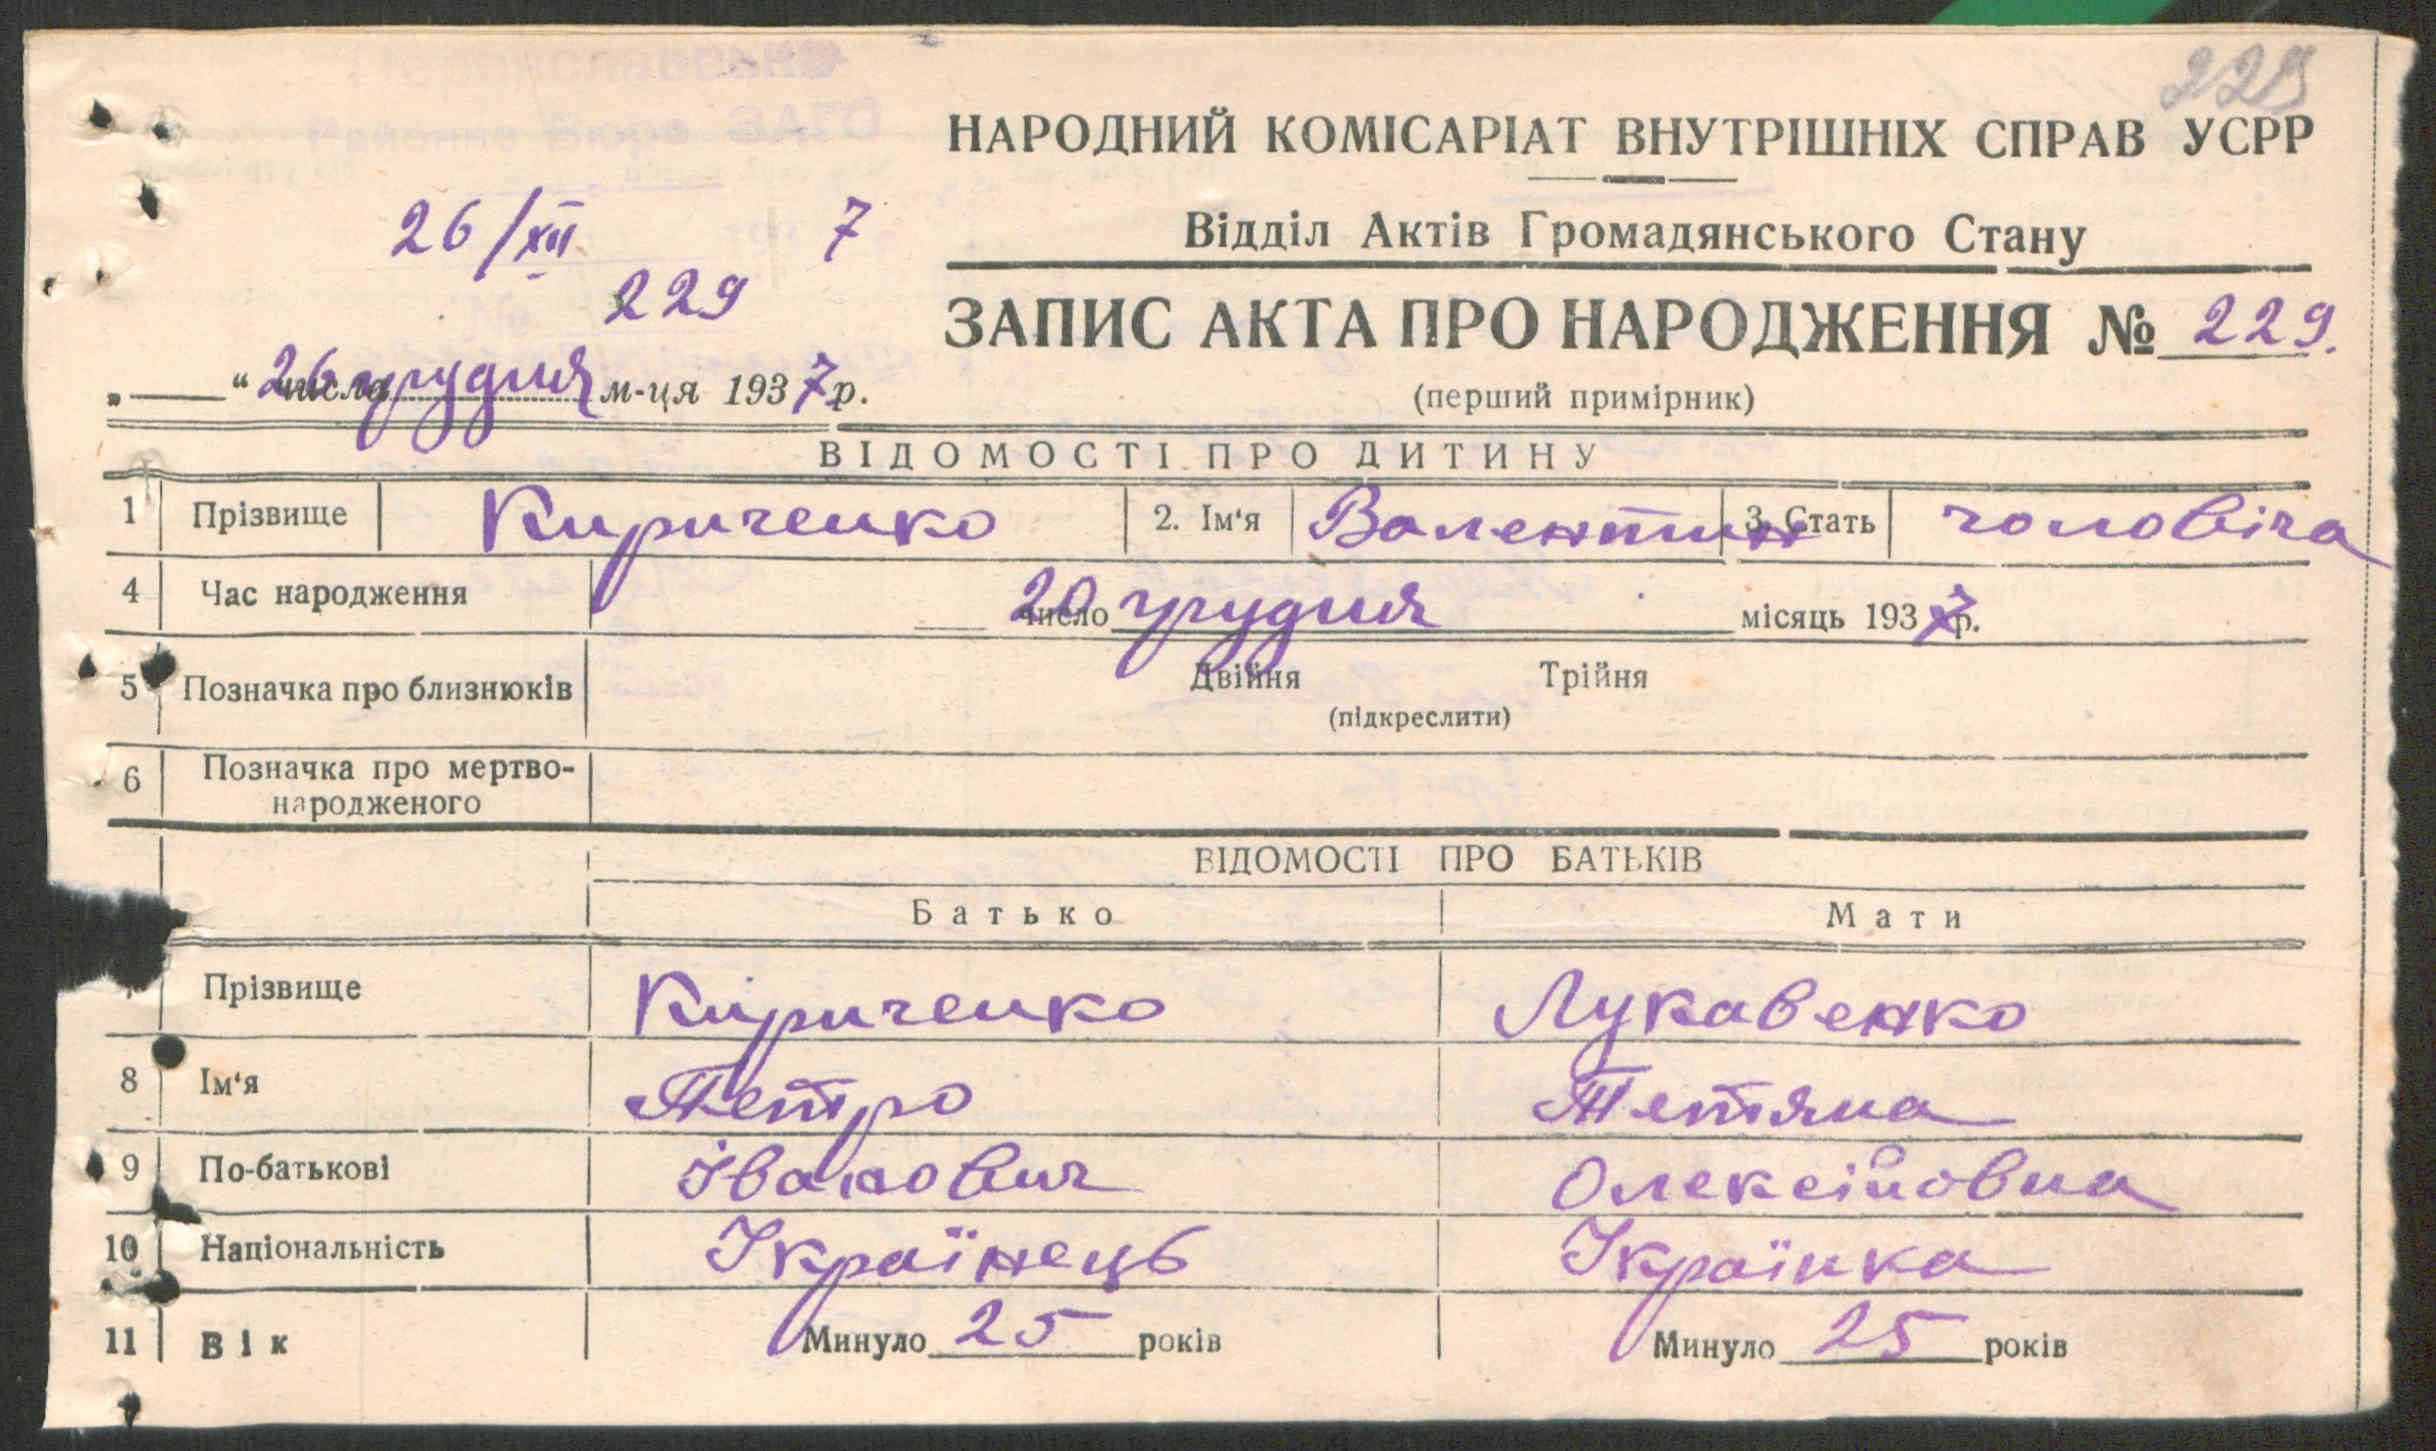 229
НАРОДНИЙ КОМІСАРІАТ ВНУТРІШНІХ СПРАВ УСРР
26/XII 7
Відділ Актів Громадянського Стану
229
ЗАПИС АКТА ПРО НАРОДЖЕННЯ № 229.
„ “ 26 числа грудня м-ця 1937 р.
(перший примірник)
ВІДОМОСТІ ПРО ДИТИНУ
1 Прізвище Кириченко 2. Ім‘я Валентин 3. Стать чоловіча
4 Час народження 20 число грудня місяць 1937 р.
5 Позначка про близнюків Двійня Трійня
(підкреслити)
6 Позначка про мертво-
народженого
ВІДОМОСТІ ПРО БАТЬКІВ
Батько Мати
7 Прізвище Кириченко Лукавенко
8 Ім‘я Петро Тетяна
9 По-батькові Іванович Олексійовна
10 Національність Українець Українка
11 Вік Минуло 25 років Минуло 25 років